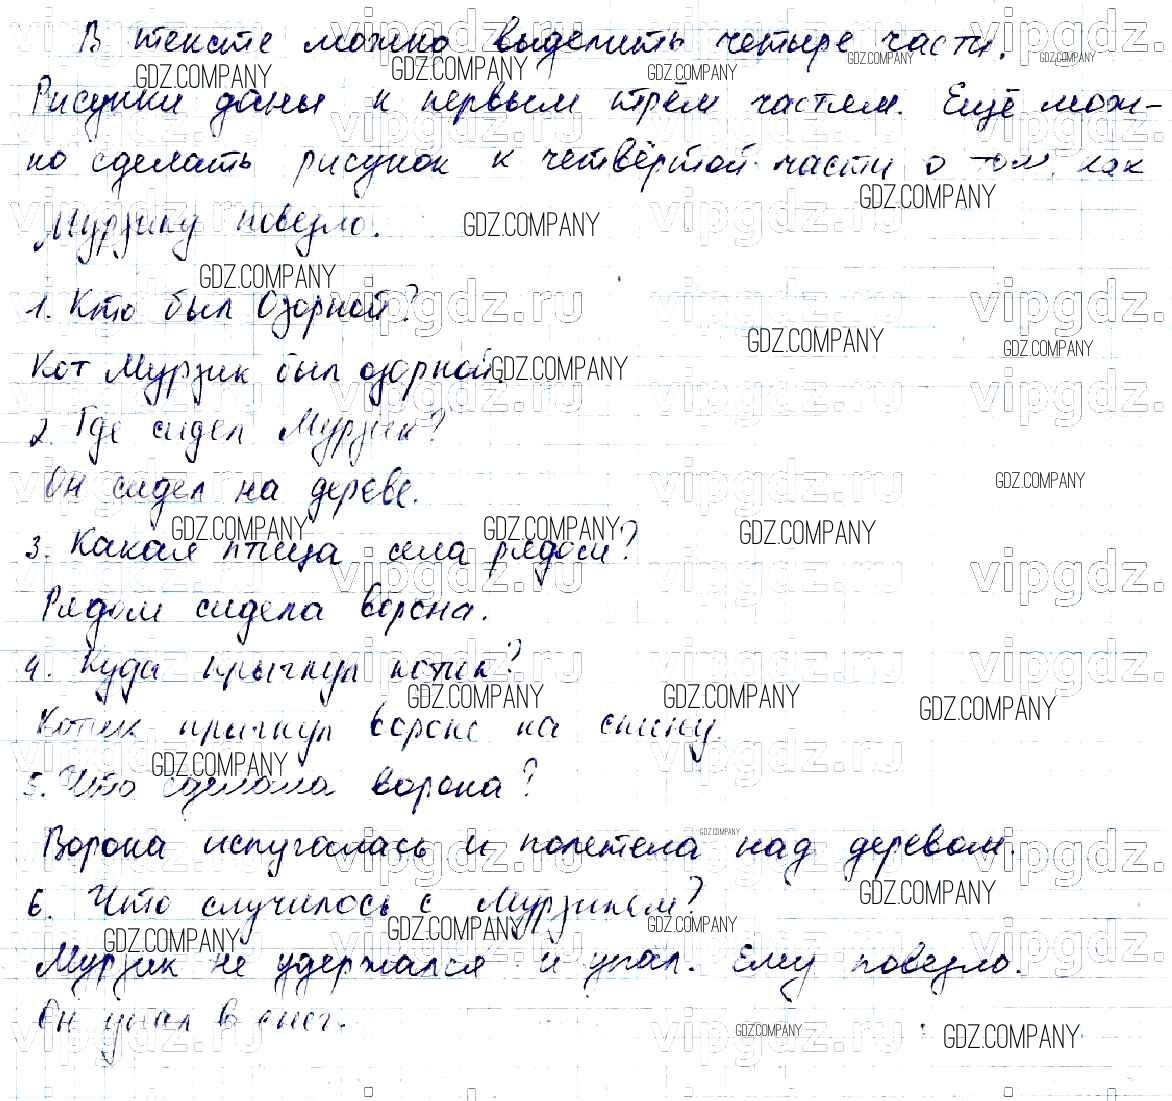 В тексте можно выделить четыре части.
Рисунки даны к первым трём частям. Ещё мож-
но сделать рисунок к четвёртой части о том, как
Мурзику повезло.
1. Кто был Озорной?
Кот Мурзик был озорной.
2. Где сидел Мурзик?
Он сидел на дереве.
3. Какая птица села рядом?
Рядом сидела ворона.
4. Куда прыгнул котик?
Котик прыгнул вороне на спину.
5. Что сделала ворона?
Ворона испугалась и полетела над деревом.
6. Что случилось с Мурзиком?
Мурзик не удержался и упал. Ему повезло.
Он упал в снег.